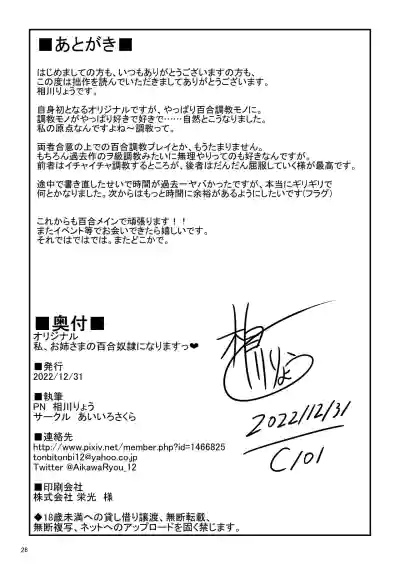 ■あとがき■
はじめましての方も、いつもありがとうございますの方も、
この度は拙作を読んでいただきましてありがとうございます。
相川りょうです。
自身初となるオリジナルですが、やっぱり百合調教モノに。
調教モノがやっぱり好きで好きで……自然とこうなりました。
私の原点なんですよね～調教って。
両者合意の上での百合調教プレイとか、もうたまりません。
もちろん過去作のヲ級調教みたいに無理やりってのも好きなんですが。
前者はイチャイチャ調教するところが、後者はだんだん屈服していく様が最高です。
途中で書き直したせいで時間が過去一ヤバかったですが、本当にギリギリで
何とかなりました。次からはもっと時間に余裕があるようにしたいです(フラグ)
これからも百合メインで頑張ります！！
またイベント等でお会いできたら嬉しいです。
それではではでは。またどこかで。
■奥付■
オリジナル
私、お姉さまの百合奴隷になりますっ❤
■発行
2022/12/31
■執筆
PN 相川りょう
サークル あいいろさくら
■連絡先
http://www.pixiv.net/member.php?id=1466825
tonbitonbi12@yahoo.co.jp
Twitter @AikawaRyou_12
■印刷会社
株式会社 栄光 様
◆18歳未満への貸し借り譲渡、無断転載、
無断複写、ネットへのアップロードを固く禁じます。
相川りょう
2022/12/31
C101
28